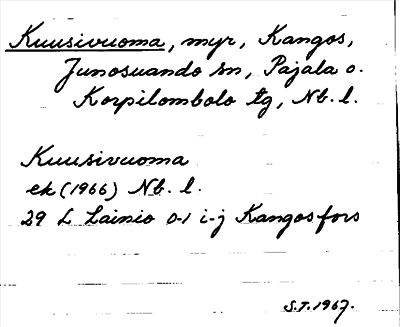 Kuusivuoma, myr, Kangos,
Junosuando sn, Pajala o.
Korpilombolo tg, Nb. l.
Kuusivuoma
ek (1966) Nb. l.
29 L Lainio 0-1 i-j Kangosfors
S.T. 1967.